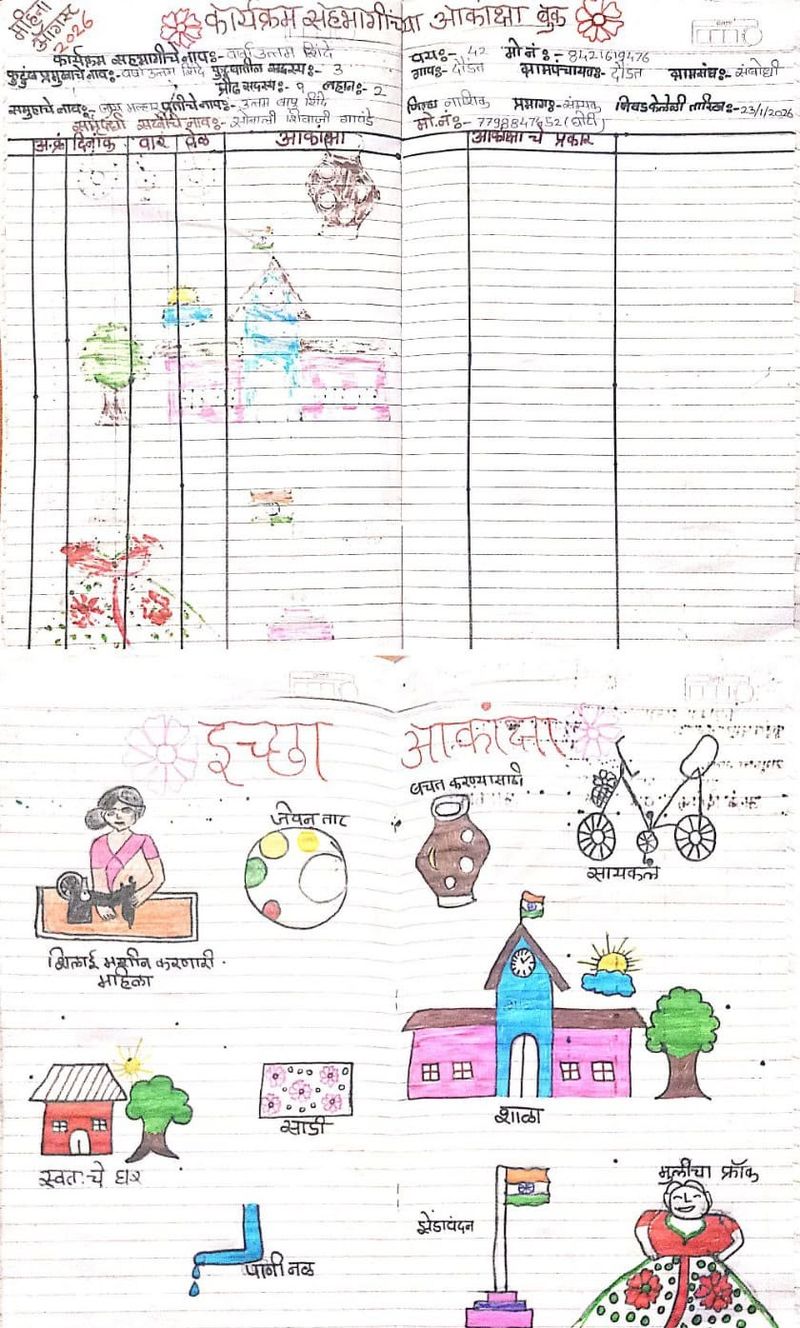 महिना
ऑगस्ट
2026
कार्यक्रम सहभागीच्या आकांक्षा बुक
कार्यक्रम सहभागीचे नाव:- वर्षा उत्तम शिंदे
वय:- 42 मो नं:- 8421619476
कुटुंब प्रमुखाचे नाव:- वर्षा उत्तम शिंदे कुटुंबातील सदस्य:- 3
गाव:- दौंडत ग्रामपंचायत:- दौंडत ग्रामसंघ:- संबोधी
प्रौढ सदस्य:- १ लहान:- 2
समुहाचे नाव:- पतीचे नाव:- उत्तम बापु शिंदे
जिल्हा नाशिक प्रभाग:- निवड केलेली तारिख:- 23/1/2026
समृध्दी सखीचे नाव:- सोनाली शिवाजी गावंडे
मो.नं:- 7798847652
अ.क्रं दिनांक वार वेळ आकांक्षा आकांक्षा चे प्रकार
इच्छा आकांक्षा
बचत करण्यासाठी
जेवन ताट
सायकल
शिलाई मशीन करणारी
महिला
शाळा
साडी
स्वतःचे घर
मुलीचा फ्रॉक
झेंडावंदन
पाणी नळ